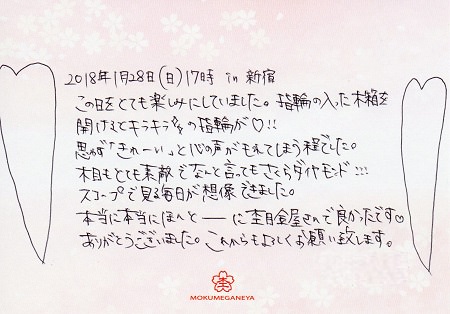 2018年1月28日(日)17時 in 新宿
この日をとても楽しみにしていました。指輪の入った木箱を
開けるとキラキラの指輪が♡!!
思わず「きれーい」と心の声がもれてしまう程でした。
木目もとても素敵でなんと言ってもさくらダイヤモンド!!!
スコープで見る毎日が想像できました。
本当に本当にほんと――に杢目金屋さんで良かったです♡
ありがとうございました。これからもよろしくお願い致します。
杢
MOKUMEGANEYA